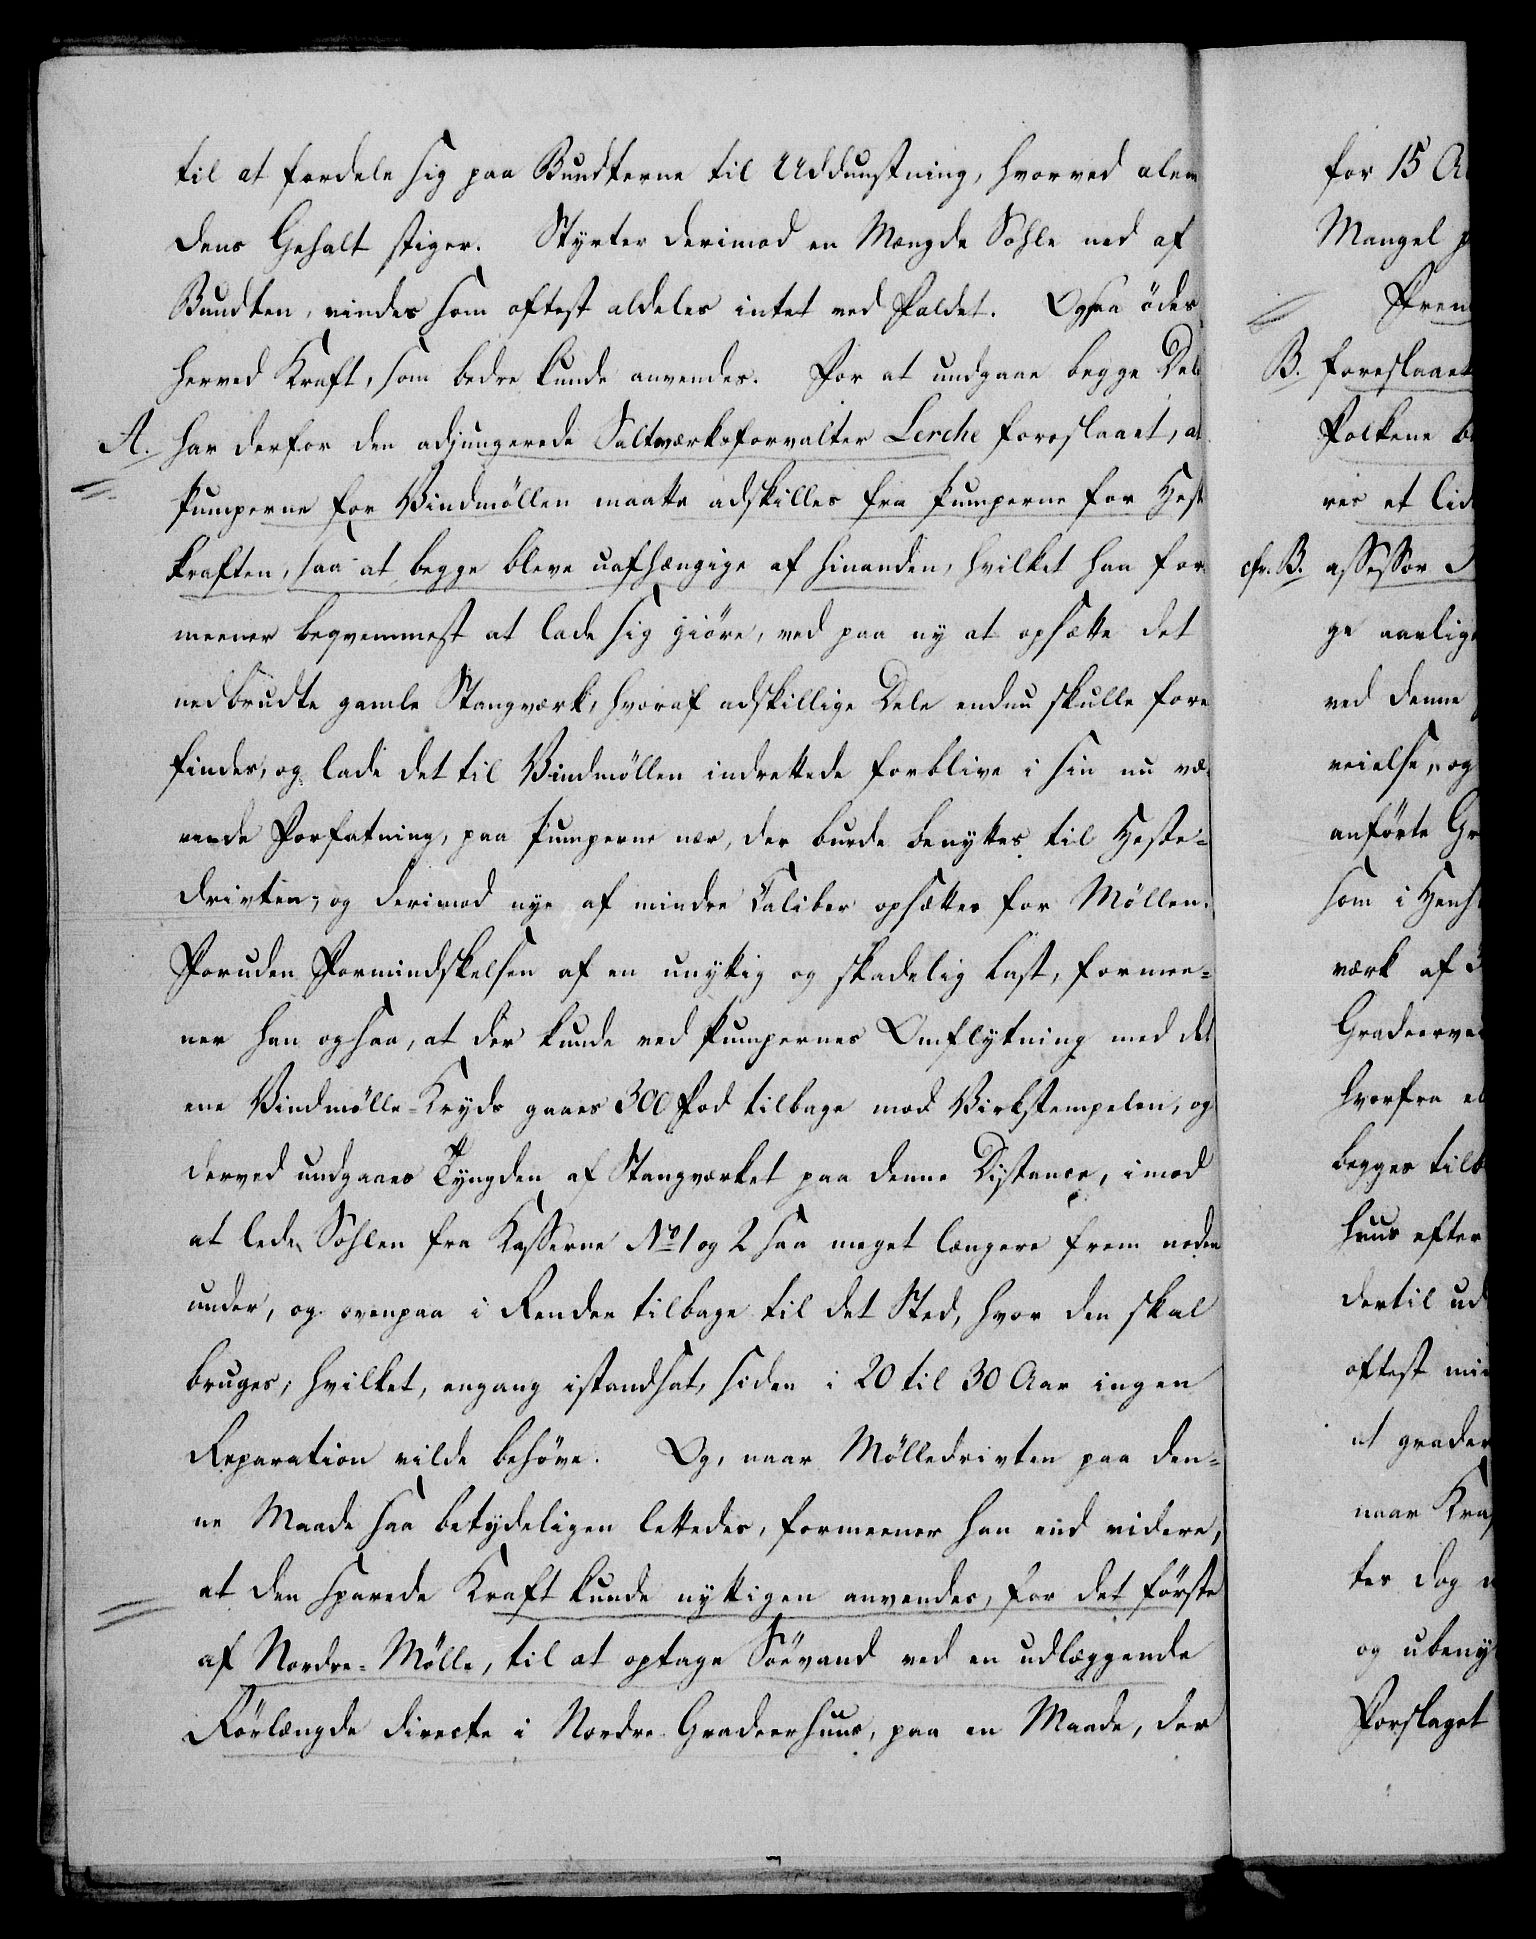 til at fordele sig paa Bundterne til Uddunstning, hvorved alene
dens Gehalt stiger. Styrter derimod en Mængde Sohle ned af
Bundten, vindes som oftest aldeles intet ved Faldet. Ogsaa ödes
herved Kraft, som bedre kunde anvendes. For at undgaae begge Dele
A. har derfor den adjungerede Saltværksforvalter Lerche foreslaaet, at
Pumperne for Vindmöllen maatte adskilles fra Pumperne for Heste
kraften, saa at begge bleve uafhængige af hinanden, hvilket han for
meener beqvemmest at lade sig giöre, ved paa ny at opsætte det
nedbrudte gamle Stangværk, hvoraf adskillige Dele endnu skulle fore
findes, og lade det til Vindmöllen indrettede forblive i sin nu væ-
rende Forfatning, paa Pumperne nær, der burde benyttes til Heste-
drivten, og derimod nye af mindre Caliber opsættes for Möllen.
Foruden Formindskelsen af en unyttig og skadelig Last, formee-
ner han ogsaa, at der kunde ved Pumpernes Omflytning med det
ene Vindmölle-Kryds gaaes 300 Fod tilbage mod Virkstempelen, og
derved undgaaes Tyngden af Stangværket paa denne Distance, imod
at lede Sohlen fra Kasserne No 1 og 2 saa meget længere frem neden
under, og ovenpaa i Render tilbage til det Sted, hvor den skal
bruges; hvilket, engang istandsat, siden i 20 til 30 Aar ingen
Reparation vilde behöve. Og, naar Mölledrivten paa den-
ne Maade saa betydeligen lettedes, formeener han end videre,
at den sparede Kraft kunde nyttigen anvendes, for det förste
af Nordre-Mölle, til at optage Söevand ved en udlæggende
Rörlængde directe i Nordre Gradeerhuus, paa en Maade, der
for 15
Mangel
B. foreslaaet
Folkene
res et
cfr. B. assessor
ge aarlige
ved denne
veielse, og
anförte
som i
værk af
Gradeerved
hvorfra
begges
huus efter
dertil
oftest
at grader
naar
tes dog
og
Forslaget